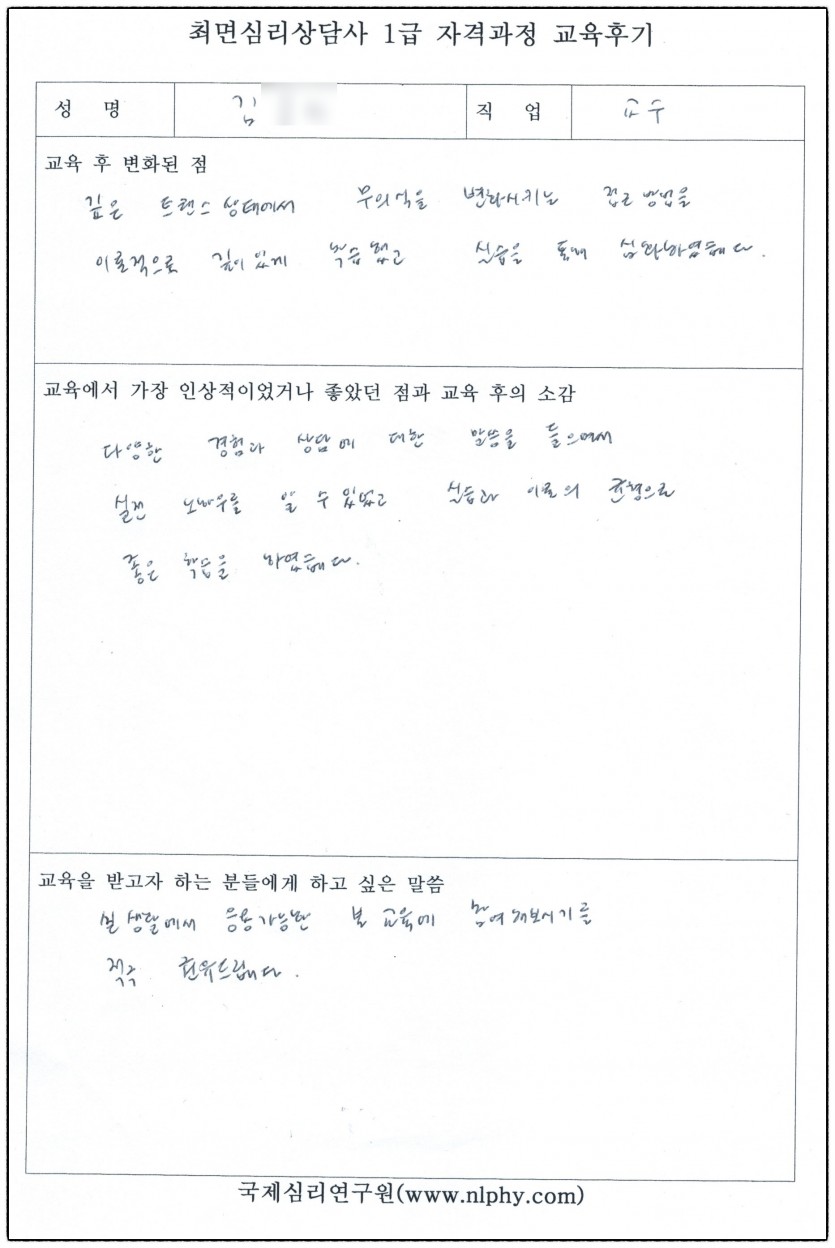 최면심리상담사 1급 자격과정 교육후기
성 명 김 직 업 교수
교육 후 변화된 점
깊은 트랜스 상태에서 무의식을 변화시키는 접근 방법을
이론적으로 깊이 있게 학습 했고 실습을 통해 심화하였습니다.
교육에서 가장 인상적이었거나 좋았던 점과 교육 후의 소감
다양한 경험과 상담에 대한 말씀을 들으면서
실전 노하우를 알 수 있었고 실습과 이론의 균형으로
좋은 학습을 하였습니다.
교육을 받고자 하는 분들에게 하고 싶은 말씀
실 생활에서 응용가능한 본 교육에 참여해보시기를
적극 권유드립니다.
국제심리연구원(www.nlphy.com)